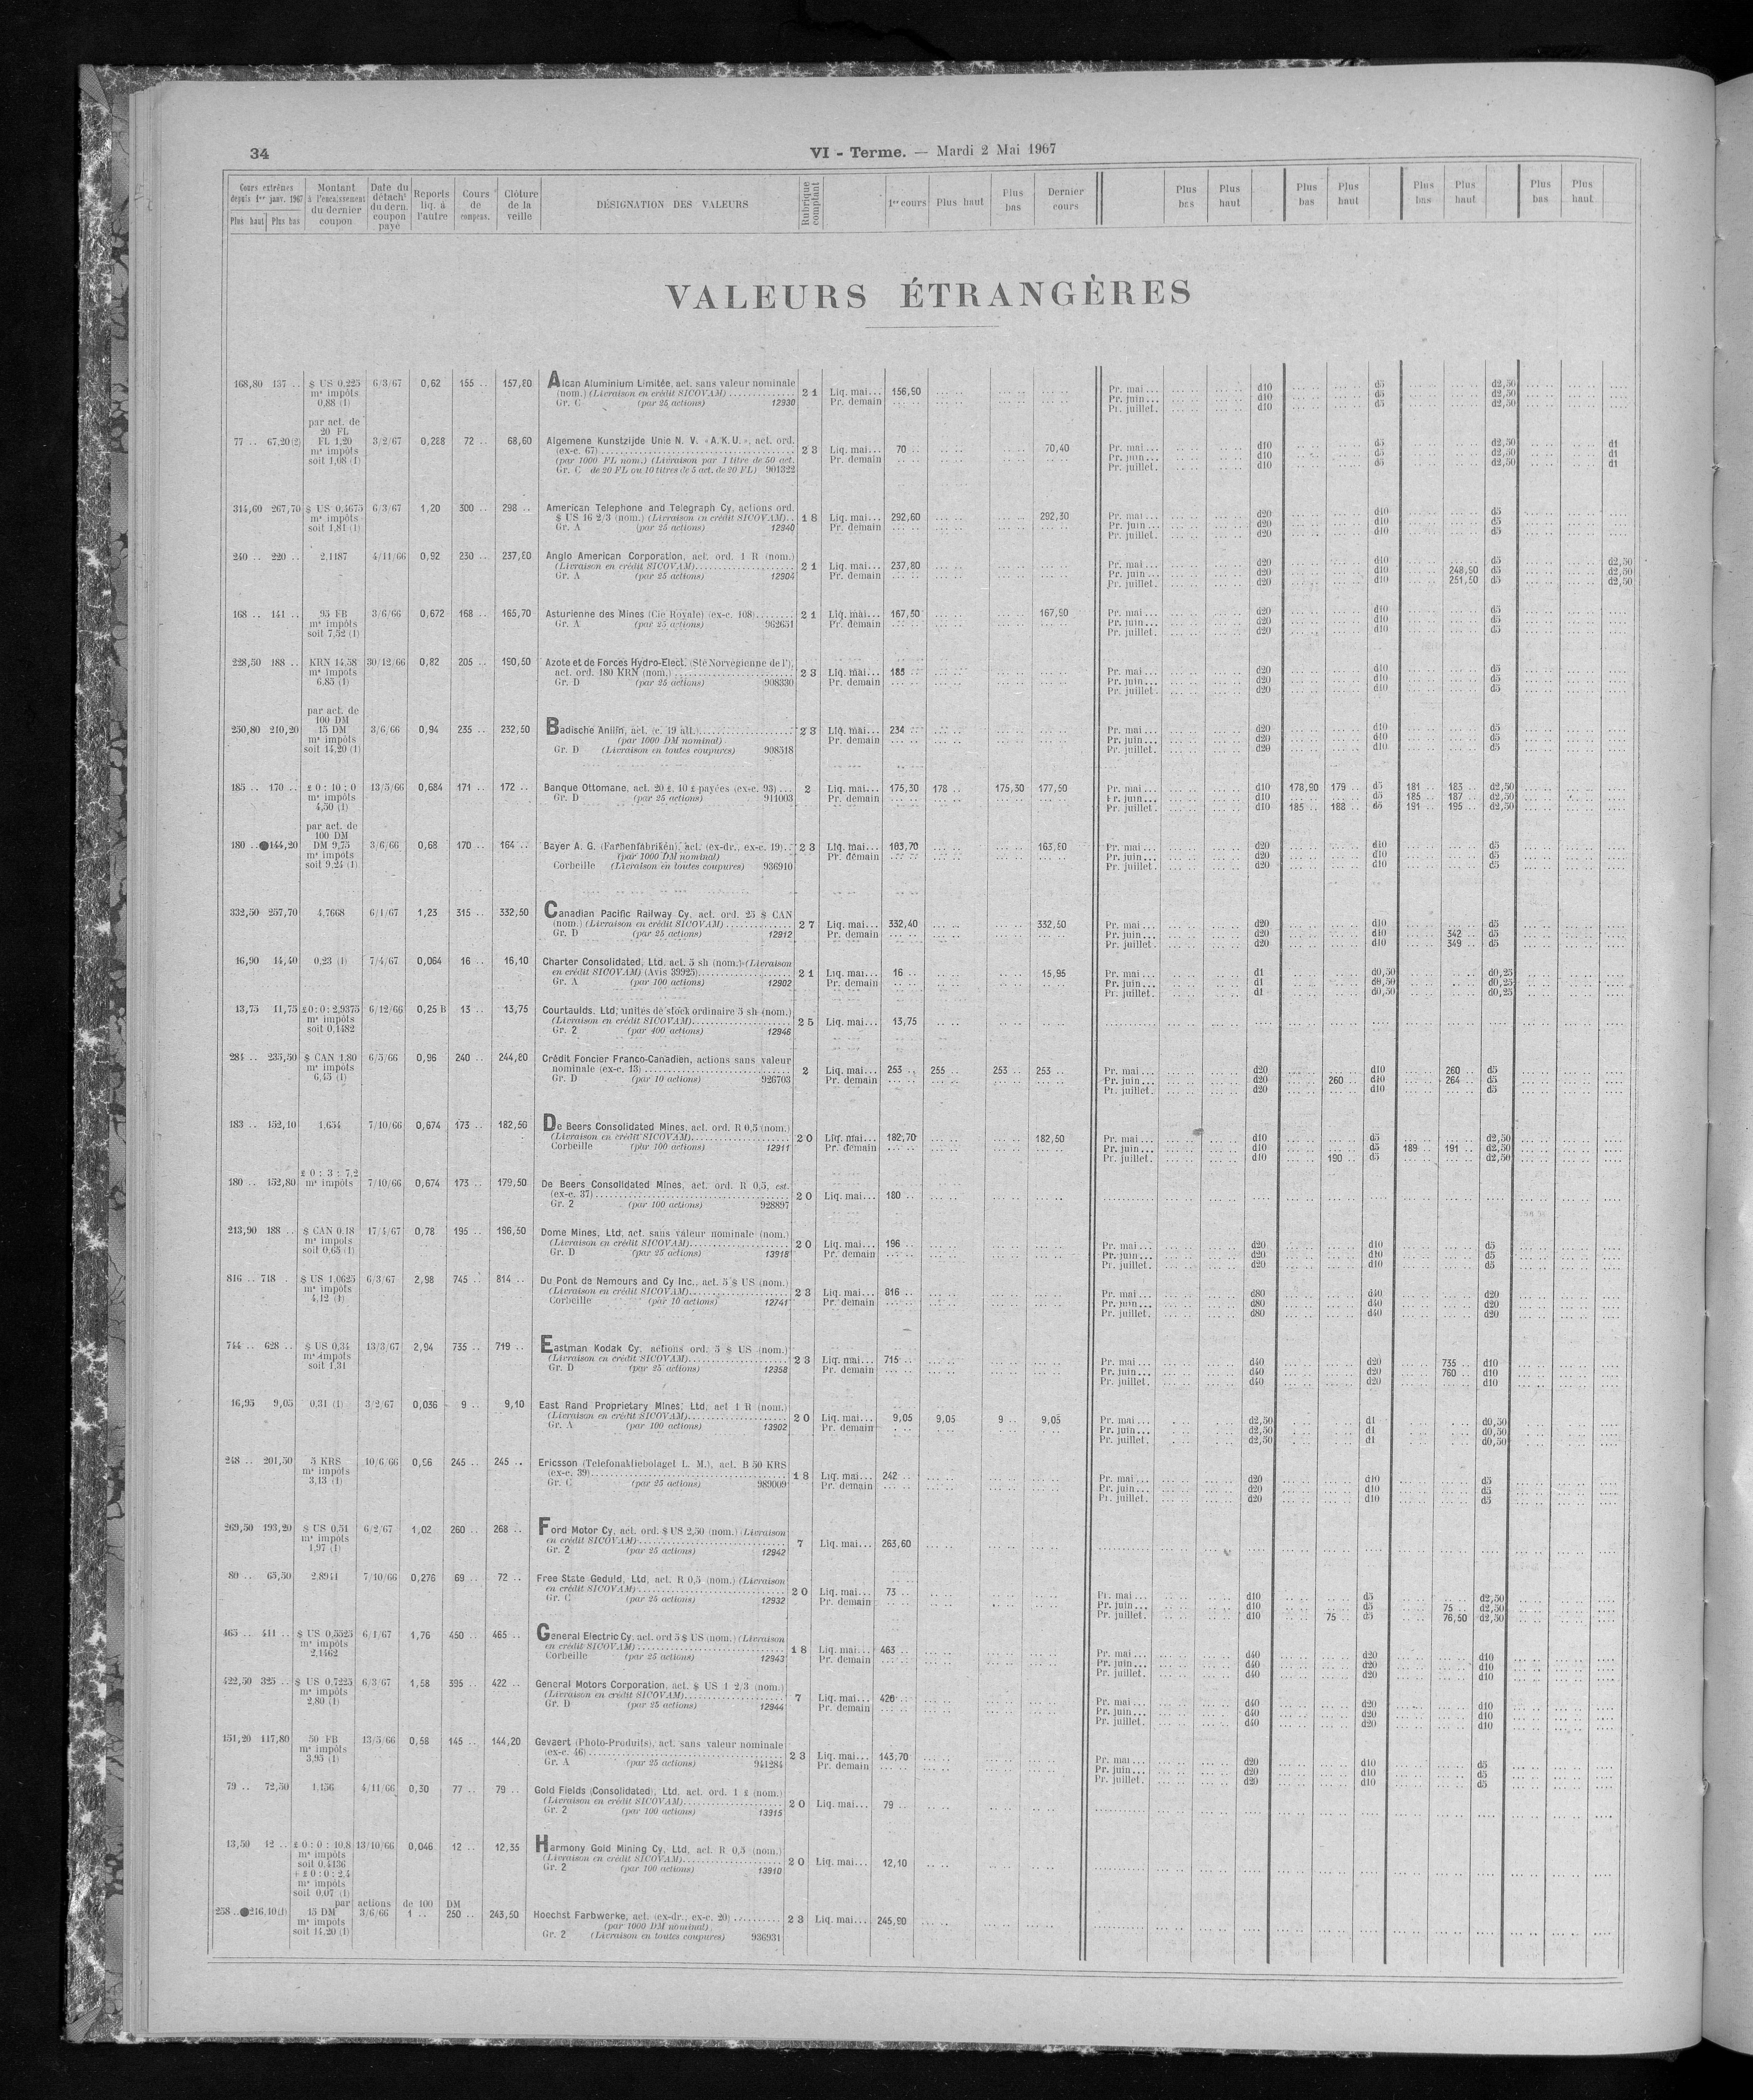 34
VI - Terme. — Mardi 2 Mai 1967
Cours extrêmes depuis 1er janv. 1967 Plus haut Plus bas
Montant à l'encaissement du dernier coupon
Date du détacht du dern. coupon payé
Reports liq. à l'autre
Cours de compens.
Clôture de la veille
DÉSIGNATION DES VALEURS
Rubrique comptant
1er cours Plus haut Plus bas Dernier cours
Plus bas Plus haut Plus bas Plus haut Plus bas Plus haut Plus bas Plus haut
VALEURS ÉTRANGÈRES
168,80 137 .. $ US 0,225 6/3/67 0,62 155 .. 157,80 Alcan Aluminium Limitée, act. sans valeur nominale
ms impôts (nom.) (Livraison en crédit SICOVAM) 21 Liq. mai... 156,90 Pr. mai ... d10 d5 d2,50
0,88 (1) Gr. C (par 25 actions) 12930 Pr. demain Pr. juin ... d10 d5 d2,50
Pr. juillet. d10 d5 d2,50
par act. de
20 FL
77 .. 67,20(2) FL 1,20 3/2/67 0,288 72 .. 68,60 Algemene Kunstzijde Unie N. V. «A.K.U.», act. ord.
ms impôts (ex-c. 67) 23 Liq. mai... 70 .. 70,40 Pr. mai ... d10 d5 d2,50 d1
soit 1,68 (1) (par 1000 FL nom.) (Livraison par 1 titre de 50 act. Pr. demain Pr. juin ... d10 d5 d2,50 d1
Gr. C de 20 FL ou 10 titres de 5 act. de 20 FL) 901322 Pr. juillet. d10 d5 d2,50 d1
314,60 267,70 $ US 0,4675 6/3/67 1,20 300 .. 298 .. American Telephone and Telegraph Cy, actions ord.
ms impôts $ US 16 2/3 (nom.) (Livraison en crédit SICOVAM).. 18 Liq. mai... 292,60 292,30 Pr. mai ... d20 d10 d5
soit 1,81 (1) Gr. A (par 25 actions) 12940 Pr. demain Pr. juin ... d20 d10 d5
Pr. juillet. d20 d10 d5
240 .. 220 .. 2,1187 4/11/66 0,92 230 .. 237,80 Anglo American Corporation, act. ord. 1 R (nom.)
(Livraison en crédit SICOVAM) 21 Liq. mai... 237,80 Pr. mai ... d20 d10 d5 d2,50
Gr. A (par 25 actions) 12904 Pr. demain Pr. juin ... d20 d10 248,90 d5 d2,50
Pr. juillet. d20 d10 251,50 d5 d2,50
168 .. 141 .. 95 FB 3/6/66 0,672 168 .. 165,70 Asturienne des Mines (Cie Royale) (ex-c. 108) 21 Liq. mai... 167,50 167,90 Pr. mai ... d20 d10 d5
ms impôts Gr. A (par 25 actions) 962651 Pr. demain Pr. juin ... d20 d10 d5
soit 7,52 (1) Pr. juillet. d20 d10 d5
228,50 188 .. KRN 14,58 30/12/66 0,82 205 .. 190,50 Azote et de Forces Hydro-Elect. (Sté Norvégienne de l'),
ms impôts act. ord. 180 KRN (nom.) 23 Liq. mai... 185 .. Pr. mai ... d20 d10 d5
6,85 (1) Gr. D (par 25 actions) 908330 Pr. demain Pr. juin ... d20 d10 d5
Pr. juillet. d20 d10 d5
par act. de
100 DM
250,80 210,20 15 DM 3/6/66 0,94 235 .. 232,50 Badische Anilin, act. (c. 19 att.) 23 Liq. mai... 234 .. Pr. mai ... d20 d10 d5
ms impôts (par 1000 DM nominal) Pr. demain Pr. juin ... d20 d10 d5
soit 14,20 (1) Gr. D (Livraison en toutes coupures) 908518 Pr. juillet. d20 d10 d5
185 .. 170 .. £ 0 : 10 : 0 13/5/66 0,684 171 .. 172 .. Banque Ottomane, act. 20 £, 10 £ payées (ex-c. 93) ... 2 Liq. mai... 175,30 178 .. 175,30 177,50 Pr. mai ... d10 178,90 179 .. d5 181 .. 183 .. d2,50
ms impôts Gr. D (par 25 actions) 911003 Pr. demain Pr. juin ... d10 d5 185 .. 187 .. d2,50
4,50 (1) Pr. juillet. d10 185 .. 188 .. d5 191 .. 195 .. d2,50
par act. de
100 DM
180 ..●144,20 DM 9,75 3/6/66 0,68 170 .. 164 .. Bayer A. G. (Farbenfabriken), act. (ex-dr., ex-c. 19) 23 Liq. mai... 163,70 163,80 Pr. mai ... d20 d10 d5
ms impôts (par 1000 DM nominal) Pr. demain Pr. juin ... d20 d10 d5
soit 9,24 (1) Corbeille (Livraison en toutes coupures) 936910 Pr. juillet. d20 d10 d5
332,50 257,70 4,7668 6/1/67 1,23 315 .. 332,50 Canadian Pacific Railway Cy, act. ord. 25 $ CAN
(nom.) (Livraison en crédit SICOVAM) 27 Liq. mai... 332,40 332,50 Pr. mai ... d20 d10 d5
Gr. D (par 25 actions) 12912 Pr. demain Pr. juin ... d20 d10 342 .. d5
Pr. juillet. d20 d10 349 .. d5
16,90 14,40 0,23 (1) 7/4/67 0,064 16 .. 16,10 Charter Consolidated, Ltd, act. 5 sh (nom.) (Livraison
en crédit SICOVAM) (Avis 39925) 21 Liq. mai... 16 .. 15,95 Pr. mai ... d1 d0,50 d0,25
Gr. A (par 100 actions) 12902 Pr. demain Pr. juin ... d1 d0,50 d0,25
Pr. juillet. d1 d0,50 d0,25
13,75 11,75 £0:0:2,9375 6/12/66 0,25 B 13 .. 13,75 Courtaulds, Ltd, unités de stock ordinaire 5 sh (nom.)
ms impôts (Livraison en crédit SICOVAM) 25 Liq. mai... 13,75
soit 0,1482 Gr. 2 (par 400 actions) 12946
284 .. 235,50 $ CAN 1,80 6/5/66 0,96 240 .. 244,80 Crédit Foncier Franco-Canadien, actions sans valeur
ms impôts nominale (ex-c. 13) 2 Liq. mai... 253 .. 255 .. 253 .. 253 .. Pr. mai ... d20 d10 260 .. d5
6,45 (1) Gr. D (par 10 actions) 926703 Pr. demain Pr. juin ... d20 260 .. d10 264 .. d5
Pr. juillet. d20 d10 d5
183 .. 152,10 1,654 7/10/66 0,674 173 .. 182,50 De Beers Consolidated Mines, act. ord. R 0,5 (nom.)
(Livraison en crédit SICOVAM) 20 Liq. mai... 182,70 182,50 Pr. mai ... d10 d5 d2,50
Corbeille (par 100 actions) 12911 Pr. demain Pr. juin ... d10 d5 189 .. 191 .. d2,50
Pr. juillet. d10 190 .. d5 d2,50
£ 0 : 3 : 7,2
180 .. 152,80 ms impôts 7/10/66 0,674 173 .. 179,50 De Beers Consolidated Mines, act. ord. R 0,5, est.
(ex-c. 37) 20 Liq. mai... 180 ..
Gr. 2 (par 100 actions) 928897
213,90 188 .. $ CAN 0,18 17/4/67 0,78 195 .. 196,50 Dome Mines, Ltd, act. sans valeur nominale (nom.)
ms impôts (Livraison en crédit SICOVAM) 20 Liq. mai... 196 .. Pr. mai ... d20 d10 d5
soit 0,65 (1) Gr. D (par 25 actions) 13918 Pr. demain Pr. juin ... d20 d10 d5
Pr. juillet. d20 d10 d5
816 .. 718 . $ US 1,0625 6/3/67 2,98 745 .. 814 .. Du Pont de Nemours and Cy Inc., act. 5 $ US (nom.)
ms impôts (Livraison en crédit SICOVAM) 23 Liq. mai... 816 .. Pr. mai ... d80 d40 d20
4,12 (1) Corbeille (par 10 actions) 12741 Pr. demain Pr. juin ... d80 d40 d20
Pr. juillet. d80 d40 d20
744 .. 628 .. $ US 0,34 13/3/67 2,94 735 .. 719 .. Eastman Kodak Cy, actions ord. 5 $ US (nom.)
ms impôts (Livraison en crédit SICOVAM) 23 Liq. mai... 715 .. Pr. mai ... d40 d20 735 .. d10
soit 1,31 Gr. D (par 25 actions) 12358 Pr. demain Pr. juin ... d40 d20 760 .. d10
Pr. juillet. d40 d20 d10
16,95 9,05 0,31 (1) 3/2/67 0,036 9 .. 9,10 East Rand Proprietary Mines, Ltd, act 1 R (nom.)
(Livraison en crédit SICOVAM) 20 Liq. mai... 9,05 9,05 9 .. 9,05 Pr. mai ... d2,50 d1 d0,50
Gr. A (par 100 actions) 13902 Pr. demain Pr. juin ... d2,50 d1 d0,50
Pr. juillet. d2,50 d1 d0,50
248 .. 201,50 5 KRS 10/6/66 0,96 245 .. 245 .. Ericsson (Telefonaktiebolaget L. M.), act. B 50 KRS
ms impôts (ex-c. 39) 18 Liq. mai... 242 .. Pr. mai ... d20 d10 d5
3,13 (1) Gr. C (par 25 actions) 989009 Pr. demain Pr. juin ... d20 d10 d5
Pr. juillet. d20 d10 d5
269,50 193,20 $ US 0,51 6/2/67 1,02 260 .. 268 .. Ford Motor Cy, act. ord. $ US 2,50 (nom.) (Livraison
ms impôts en crédit SICOVAM) 7 Liq. mai... 263,60
1,97 (1) Gr. 2 (par 25 actions) 12942
80 .. 65,50 2,8941 7/10/66 0,276 69 .. 72 .. Free State Geduld, Ltd, act. R 0,5 (nom.) (Livraison
en crédit SICOVAM) 20 Liq. mai... 73 .. Pr. mai ... d10 d5 d2,50
Gr. C (par 25 actions) 12932 Pr. demain Pr. juin ... d10 d5 75 .. d2,50
Pr. juillet. d10 75 .. d5 76,50 d2,50
465 .. 411 .. $ US 0,5525 6/1/67 1,76 450 .. 465 .. General Electric Cy, act. ord 5 $ US (nom.) (Livraison
ms impôts en crédit SICOVAM) 18 Liq. mai... 463 .. Pr. mai ... d40 d20 d10
2,1462 Corbeille (par 25 actions) 12943 Pr. demain Pr. juin ... d40 d20 d10
Pr. juillet. d40 d20 d10
422,50 325 .. $ US 0,7225 6/3/67 1,58 395 .. 422 .. General Motors Corporation, act. $ US 1 2/3 (nom.)
ms impôts (Livraison en crédit SICOVAM) 7 Liq. mai... 420 .. Pr. mai ... d40 d20 d10
2,80 (1) Gr. D (par 25 actions) 12944 Pr. demain Pr. juin ... d40 d20 d10
Pr. juillet. d40 d20 d10
151,20 117,80 50 FB 13/5/66 0,58 145 .. 144,20 Gevaert (Photo-Produits), act. sans valeur nominale
ms impôts (ex-c. 46) 23 Liq. mai... 143,70 Pr. mai ... d20 d10 d5
3,95 (1) Gr. A (par 25 actions) 941284 Pr. demain Pr. juin ... d20 d10 d5
Pr. juillet. d20 d10 d5
79 .. 72,50 1,156 4/11/66 0,30 77 .. 79 .. Gold Fields (Consolidated), Ltd, act. ord. 1 £ (nom.)
(Livraison en crédit SICOVAM) 20 Liq. mai... 79 ..
Gr. 2 (par 100 actions) 13915
13,50 12 .. £ 0 : 0 : 10,8 13/10/66 0,046 12 .. 12,35 Harmony Gold Mining Cy, Ltd, act. R 0,5 (nom.)
ms impôts (Livraison en crédit SICOVAM) 20 Liq. mai... 12,10
soit 0,4136 Gr. 2 (par 100 actions) 13910
+ £ 0 : 0 : 2,4
ms impôts
soit 0,07 (1)
par actions de 100 DM
258 ..●216,10(1) 15 DM 3/6/66 1 .. 250 .. 243,50 Hoechst Farbwerke, act. (ex-dr., ex-c. 20) 23 Liq. mai... 245,90
ms impôts (par 1000 DM nominal)
soit 14,20 (1) Gr. 2 (Livraison en toutes coupures) 936931